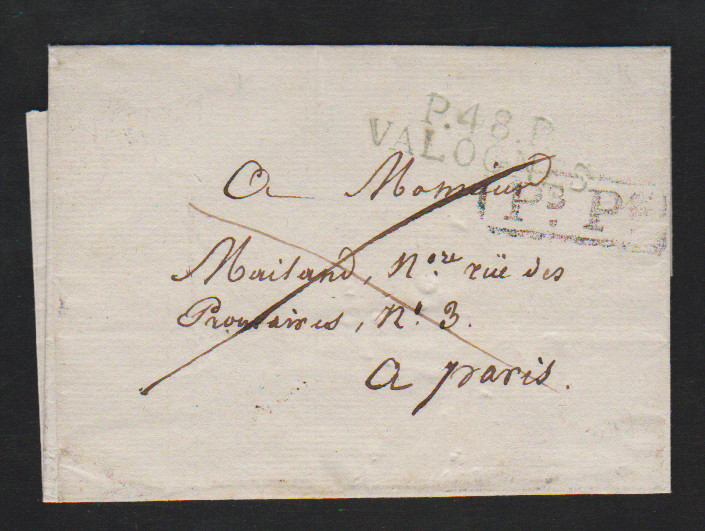 P.48.P.
VALOGNES
Ps. Ps.
A Monsieur
Mailand, Nore. rüe des
Prouvaires, No. 3.
A paris.